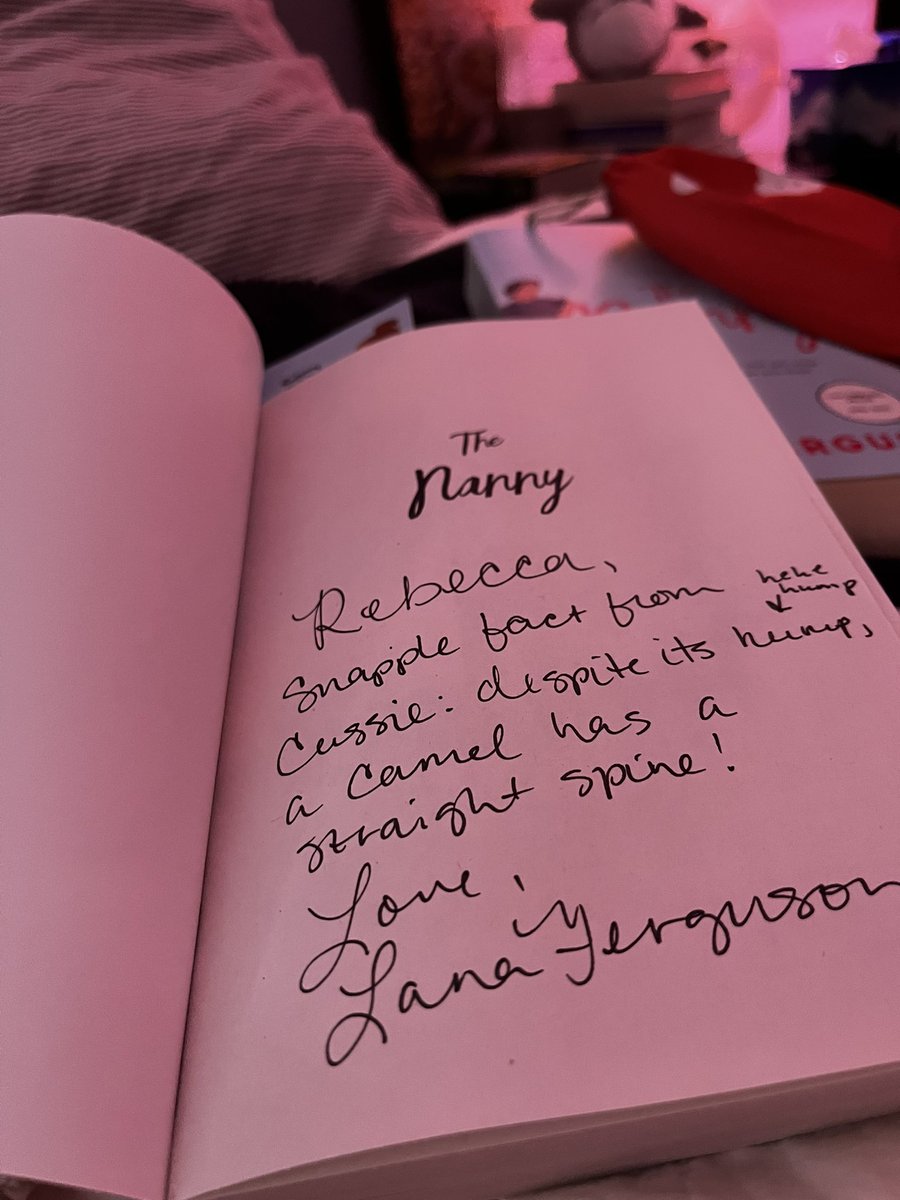 The
Nanny
Rebecca,
Snapple fact from
hehe
hump
Cussie: despite its hump,
a camel has a
straight spine!
Love,
Lana Ferguson
RGUS